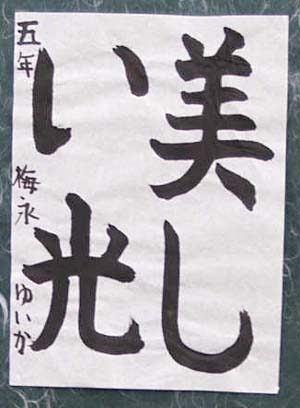 美し
い光
五年 梅永 ゆいか